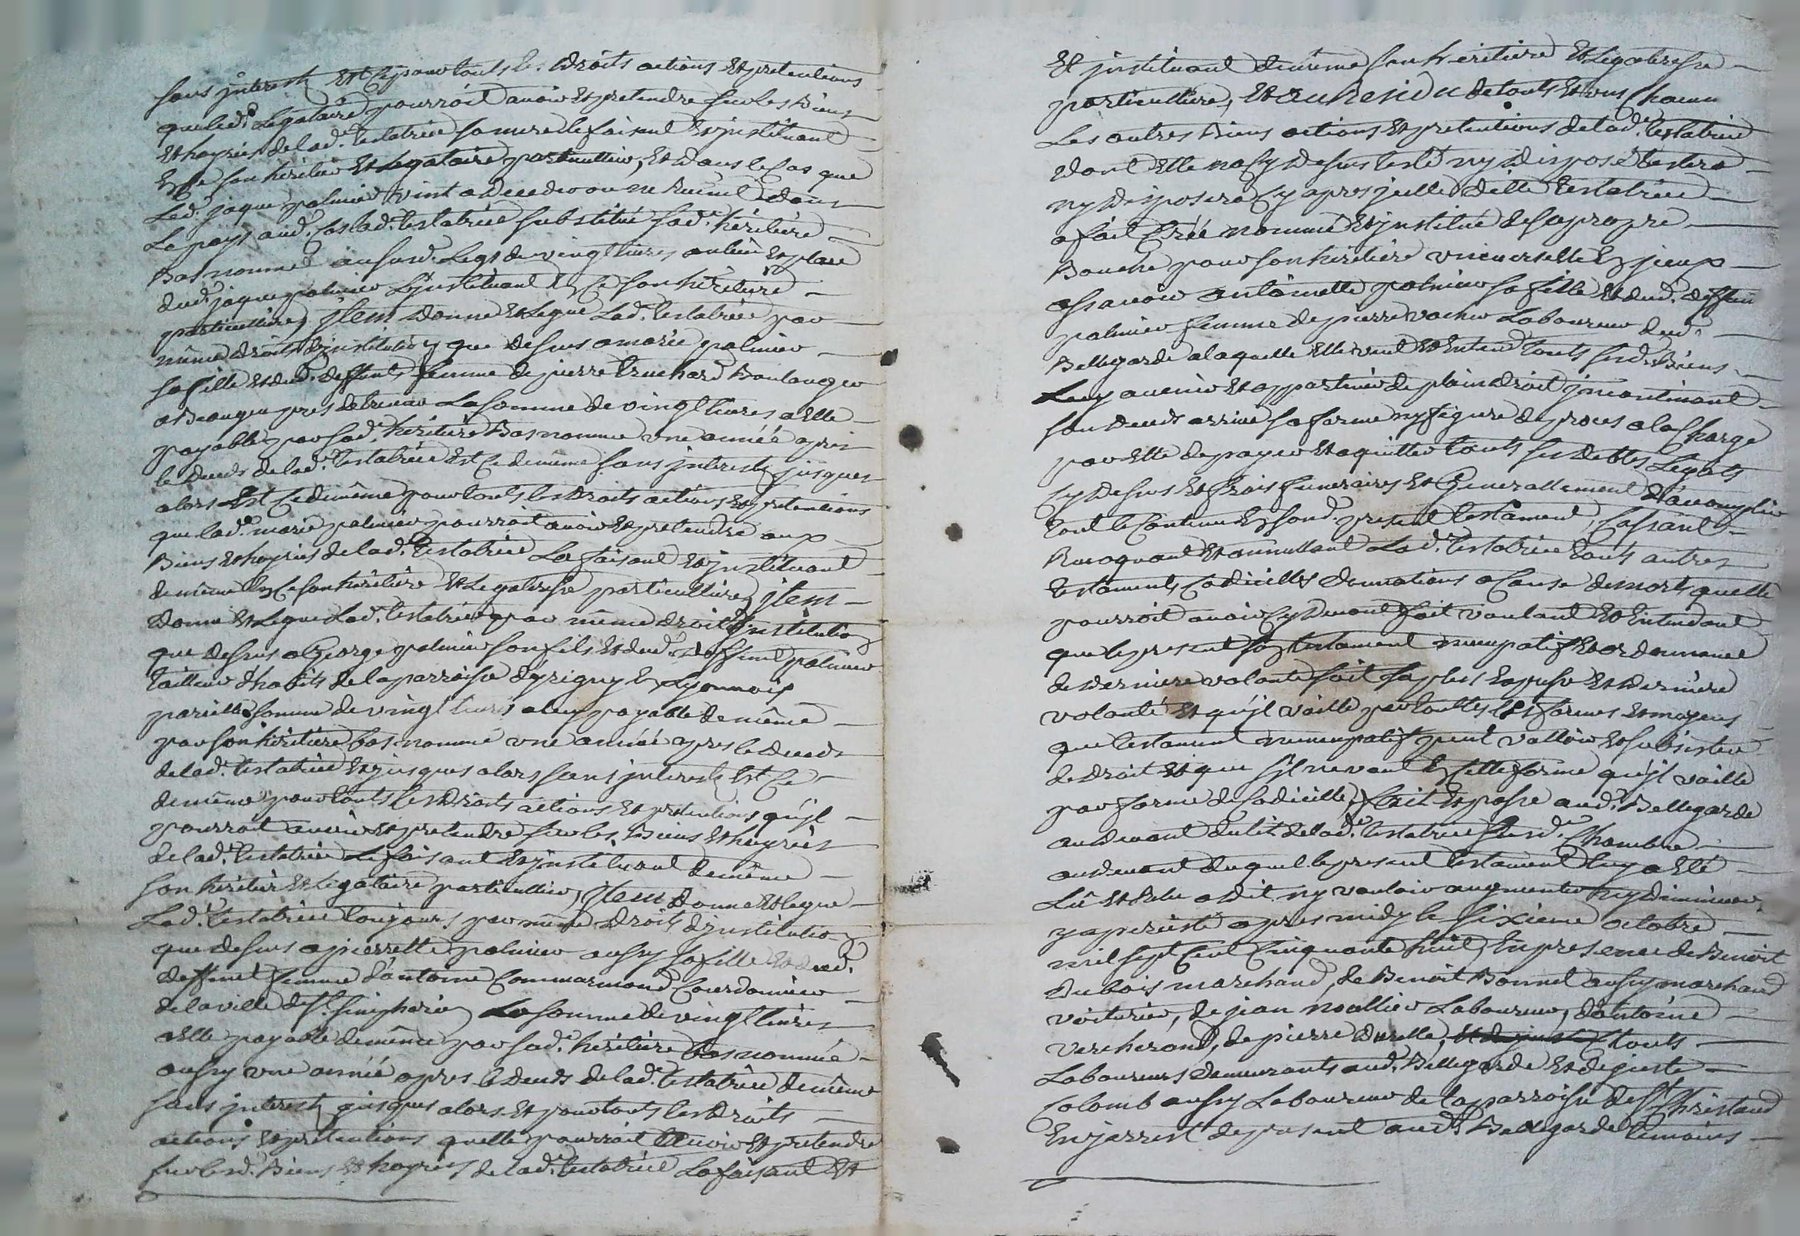 sans interest Et Ce pour touts les droits actions Et pretentions
que led. Legataire pourroit avoir Et pretendre sur les Biens
Et hoyries de lad. testatrice sa mere le faisant Et instituant
En Ce son héritier Et Legataire particullier, Et dans le Cas que
Led. jaque palmier vint a deceder ou ne Revint dans
Le pays aud. Cas lad. testatrice substitue sad. héritière
Bas nommée au susd. Legs de vingt livres au lieu Et place
dud. jaque palmier L'instituant En Ce son héritière
particulliere, jtem donne Et Legue Lad. testatrice par
même droit d'institution que dessus a marie palmier
sa fille Et dud. deffunt femme de pierre truchard Boulanger
a Beaujeu pres La somme de vingt livres a Elle
payable par sad. héritière Bas nommée une année apres
le deceds de lad. testatrice Et Ce de même sans interest jusques
alors Et Ce de même pour touts les droits actions Et pretentions
que lad. marie palmier pourroit avoir Et pretendre aux
Biens Et hoyries de lad. testatrice La faisant Et instituant
de même En Ce son héritière Et Legatresse particulliere, jtem
donne Et Legue Lad. testatrice par même droit d'institution
que dessus a George palmier son fils Et dud. deffunt palmier
tailleur d'habits de la parroisse d'yrigny En Lyonnois
pareille somme de vingt livres a luy payable de même
par son héritière bas nommée une année apres le deceds
de lad. testatrice Et jusques alors sans interest Et Ce
de même pour touts les droits actions Et pretentions qu'jl
pourroit avoir Et pretendre sur les Biens Et hoyries
de lad. testatrice Le faisant Et instituant de même
son héritier Et Legataire particullier, jtem donne Et Legue
Lad. testatrice toujours par même droit d'institution
que dessus a pierrette palmier aussy sa fille Et dud.
deffunt femme d'antoine Commarmond Cordonnier
de la ville de St. simphorien La somme de vingt livres
a Elle payable de même par sad. héritière bas nommée
aussy une année apres le deceds de lad. testatrice de même
sans interest jusques alors Et pour touts les droits
actions Et pretentions quelle pourroit avoir Et pretendre
sur lesd. Biens Et hoyries de lad. testatrice La faisant Et
Et instituant de même son héritière Et Legatresse
particulliere, Et au Residu de touts Et uns chacun
Les autres Biens actions Et pretentions de lad. testatrice
dont Elle n'a cy dessus testé ny disposé testera
ny disposera cy apres jcelle ditte testatrice
a fait Créé nommé Et institué de sa propre
Bouche pour son héritière universelle En jceux
assavoir antoinette palmier sa fille Et dud. deffunt
palmier femme de pierre vacher Laboureur dud.
Bellegarde a laquelle Elle veut Et Entend touts sesd. Biens
Luy avenir Et appartenir de plain droit jncontinant
son deceds arrivé sa forme ny figure de proces a la Charge
par Elle de payer Et aquitter touts ses debtes Legats
cy dessus Et frais funeraires Et Generallement d'accomplir
tout le Contenu En son present testament, Cassant
Revoquant Et annullant Lad. testatrice touts autres
testaments Codicilles donnations a Cause de mort quelle
pourroit avoir cy devant fait voulant Et Entendant
que le present son testament nuncupatif Et ordonnance
de derniere volonté soit sa plus Expresse Et derniere
volonté Et qu'jl vaille par touttes les formes Et moyens
que testament nuncupatif peut valloir Et subsister
de droit Et que s'jl ne vaut En cette forme qu'jl vaille
par forme de Codicille, fait Et passé aud. Bellegarde
au devant du lit de lad. testatrice susd. Chambre
au devant duquel le present testament luy a Eté
Lû Et Relu a dit ny vouloir augmenter ny diminuer
y a persisté apres midy le sixieme octobre
mil sept Cent Cinquante huit, En presence de Benoit
Dubois marchand, de Benoit Bonnet aussy marchand
voiturier, de jean noallier Laboureur, d'antoine
vercherand, de pierre Durelle, touts
Laboureurs demeurants aud. Bellegarde Et de juste
Colomb aussy Laboureur de la parroisse de St. Christaud
En jarrest de present aud. Bellegarde temoins